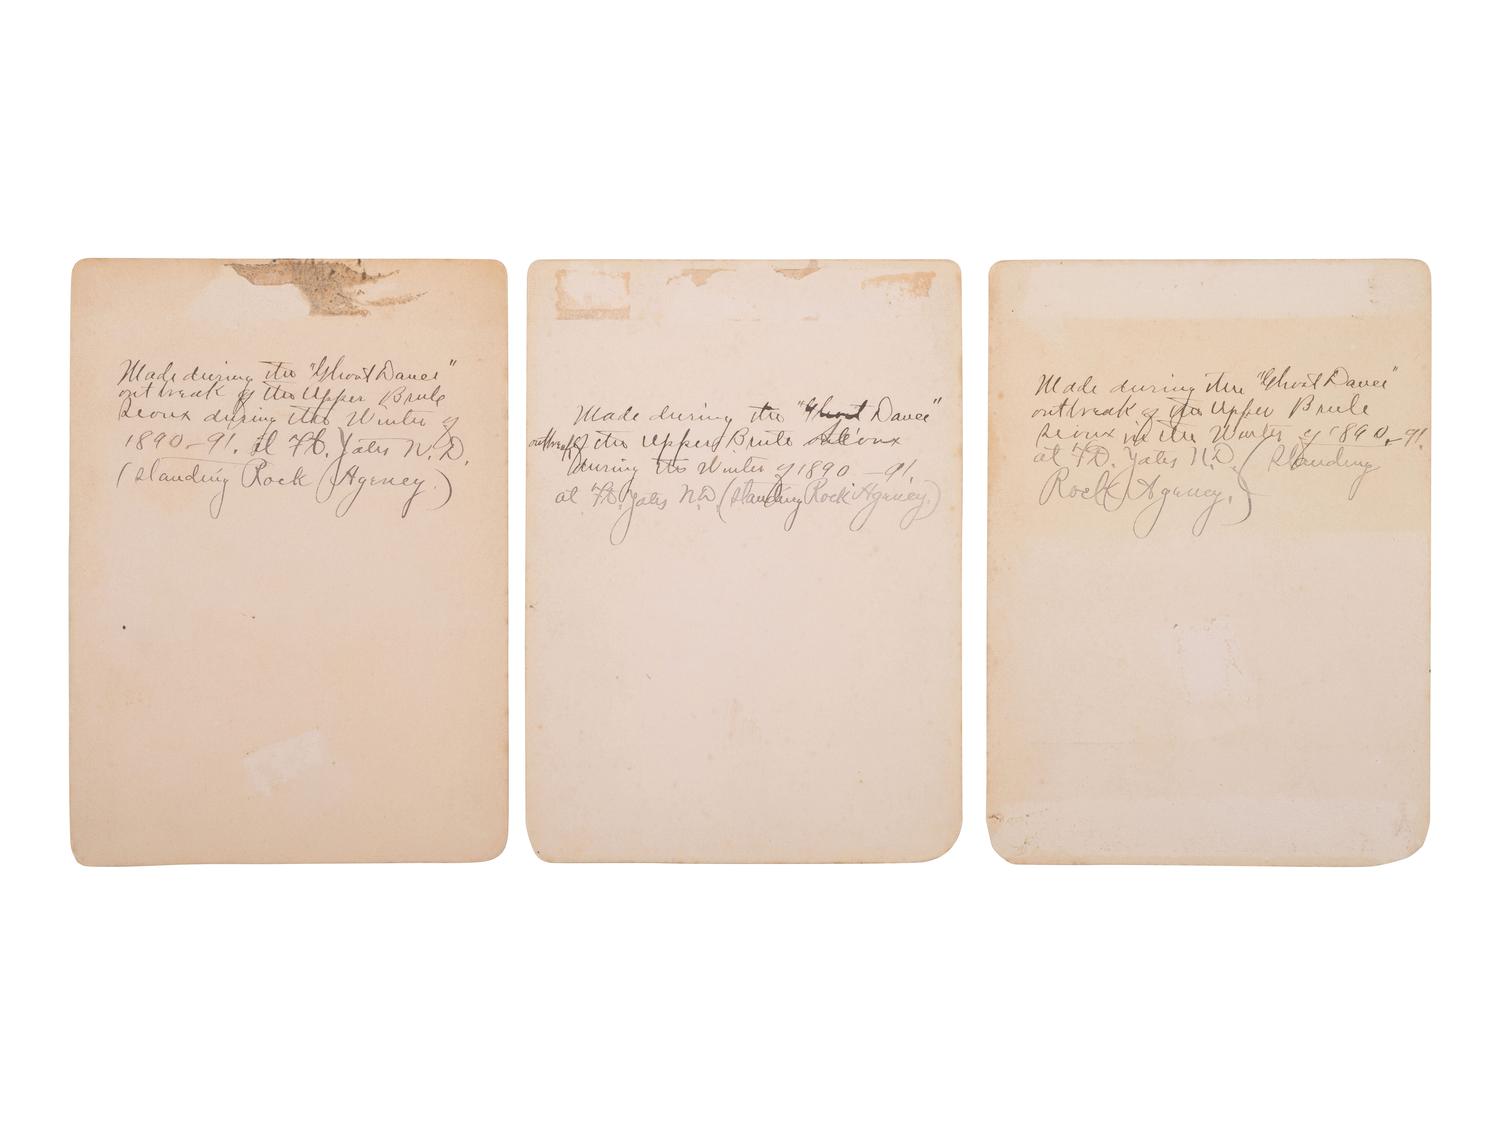 Made during the "Ghost Dance"
outbreak of the Upper Brule
Sioux during the Winter of
1890-91. at Ft. Yates N.D.
(Standing Rock Agency.)
Made during the "Ghost Dance"
outbreak of the Upper Brule Sioux
during the Winter of 1890-91.
at Ft. Yates N.D. (Standing Rock Agency.)
Made during the "Ghost Dance"
outbreak of the Upper Brule
Sioux in the Winter of 1890-91.
at Ft. Yates N.D. (Standing
Rock Agency.)